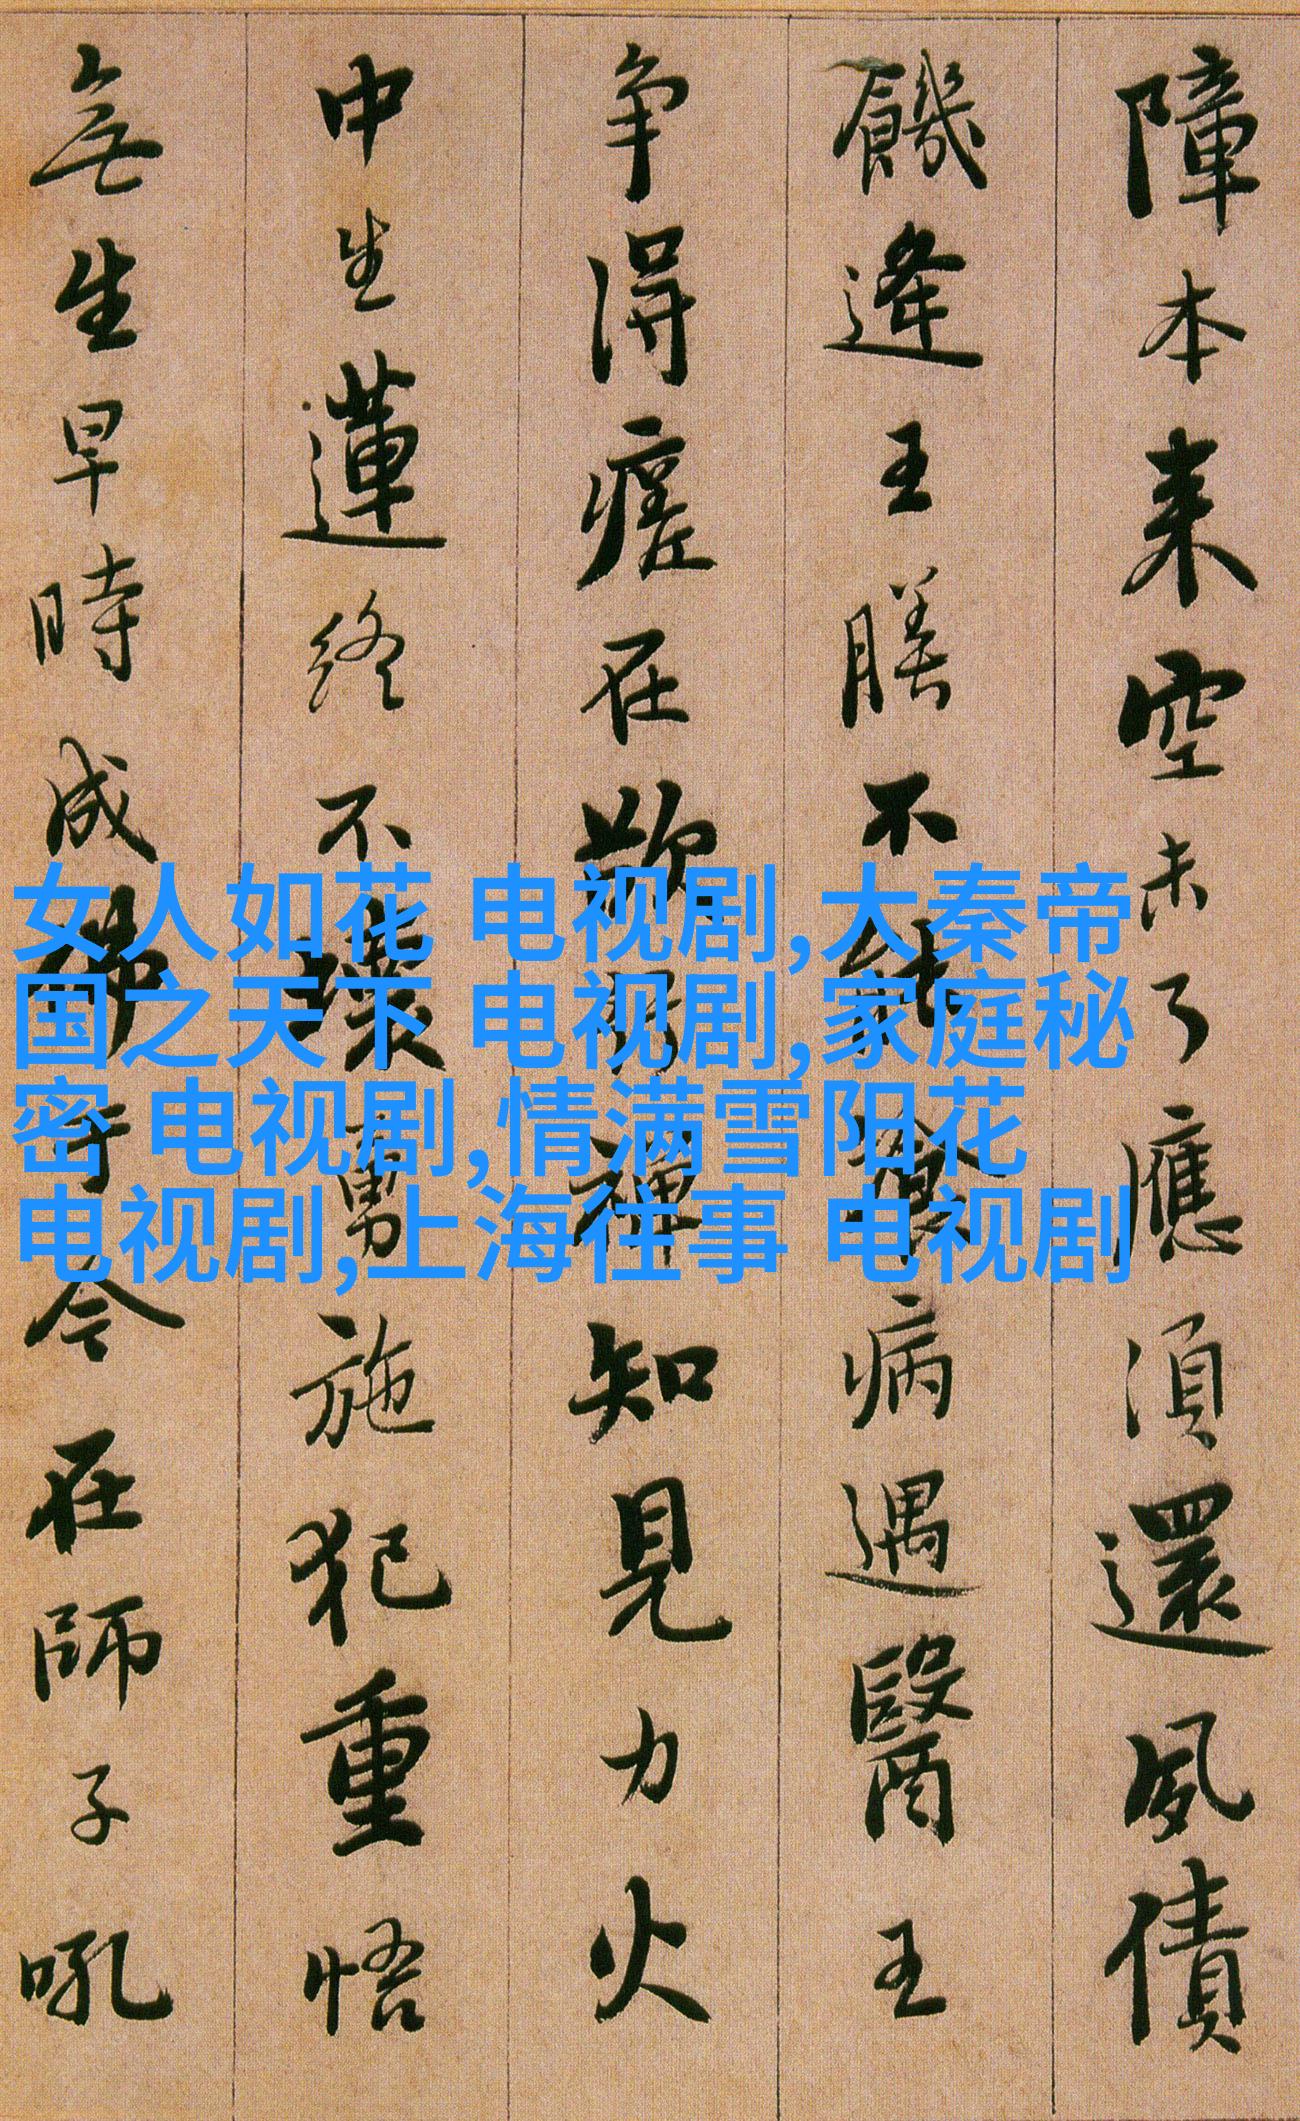 障本来空未了應湏還夙債
饑逢王膳不能病遇醫王
争得瘥在欲行禅知見力火
中生蓮终不壞勇施犯重悟
無生早時成佛于今在師子吼
女人如花 电视剧,大秦帝
国之天下 电视剧,家庭秘
密 电视剧,情满雪阳花
电视剧,上海往事 电视剧